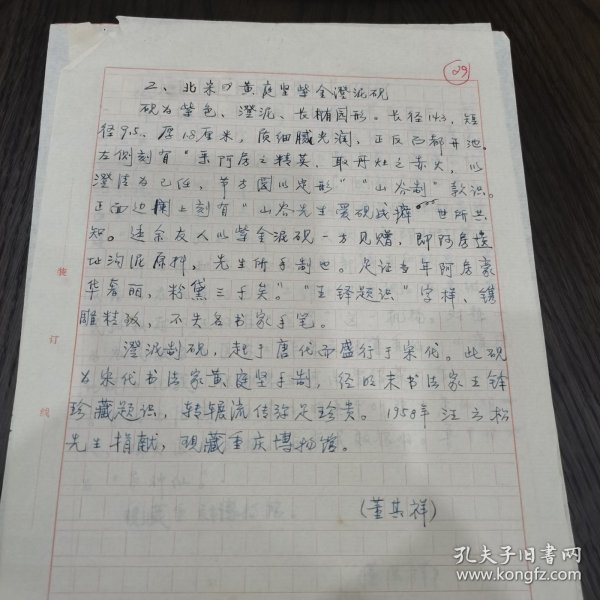 29
二、北宋 黄庭坚紫金澄泥砚
砚为紫色、澄泥、长椭园形。长径14.3,短
径9.5、厚1.8厘米,质细腻光润,正反西都开池。
左侧刻有"采阿房之精英,取丹灶之赤火,以
澄清为己任,节方圆以定形""山谷制"款识。
正面边上刻有"山谷先生爱砚成癖 世所共
知。适余友人以紫金泥砚一方见赠,即阿房遗
址沟泥原料,先生所手制也。足证当年阿房豪
华奢丽,粉黛三千矣。""王铎题识"字样,镌
雕精致,不失名书家手笔。
澄泥制砚,起于唐代而盛行于宋代。此砚
为宋代书法家黄庭坚手制,经明末书法家王铎
珍藏题识,转辗流传弥足珍贵。1958年汪云松
先生捐献,现藏重庆博物馆。
(董其祥)
装
订
线
孔夫子旧书网
www.kongfz.com